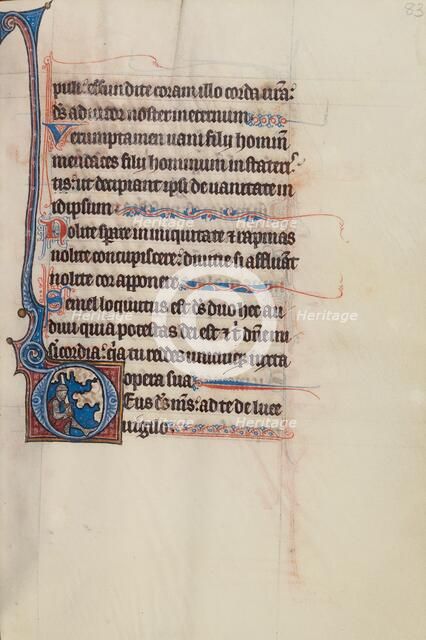 83
puli: effundite coram illo corda vr̄a:
ds̄ adiutor noster in eternum
Verumptamen vani filij hominū
mendaces filij hominum in stateris
tis: ut decipiant ipsi de vanitate in
idipsum
Nolite sperare in iniquitate et rapinas
nolite concupiscere: diuitie si affluāt
nolite cor apponere
Semel locutus est ds̄ duo hec au
diui quia potestas dei est et t̄ dn̄e mi
sericordia: qr̄ tu reddes unicuiqȝ iuxta
opera sua
Deus ds̄ ms̄: ad te de luce
uigilo
heritage
Heritage
Heritage
Images
Images